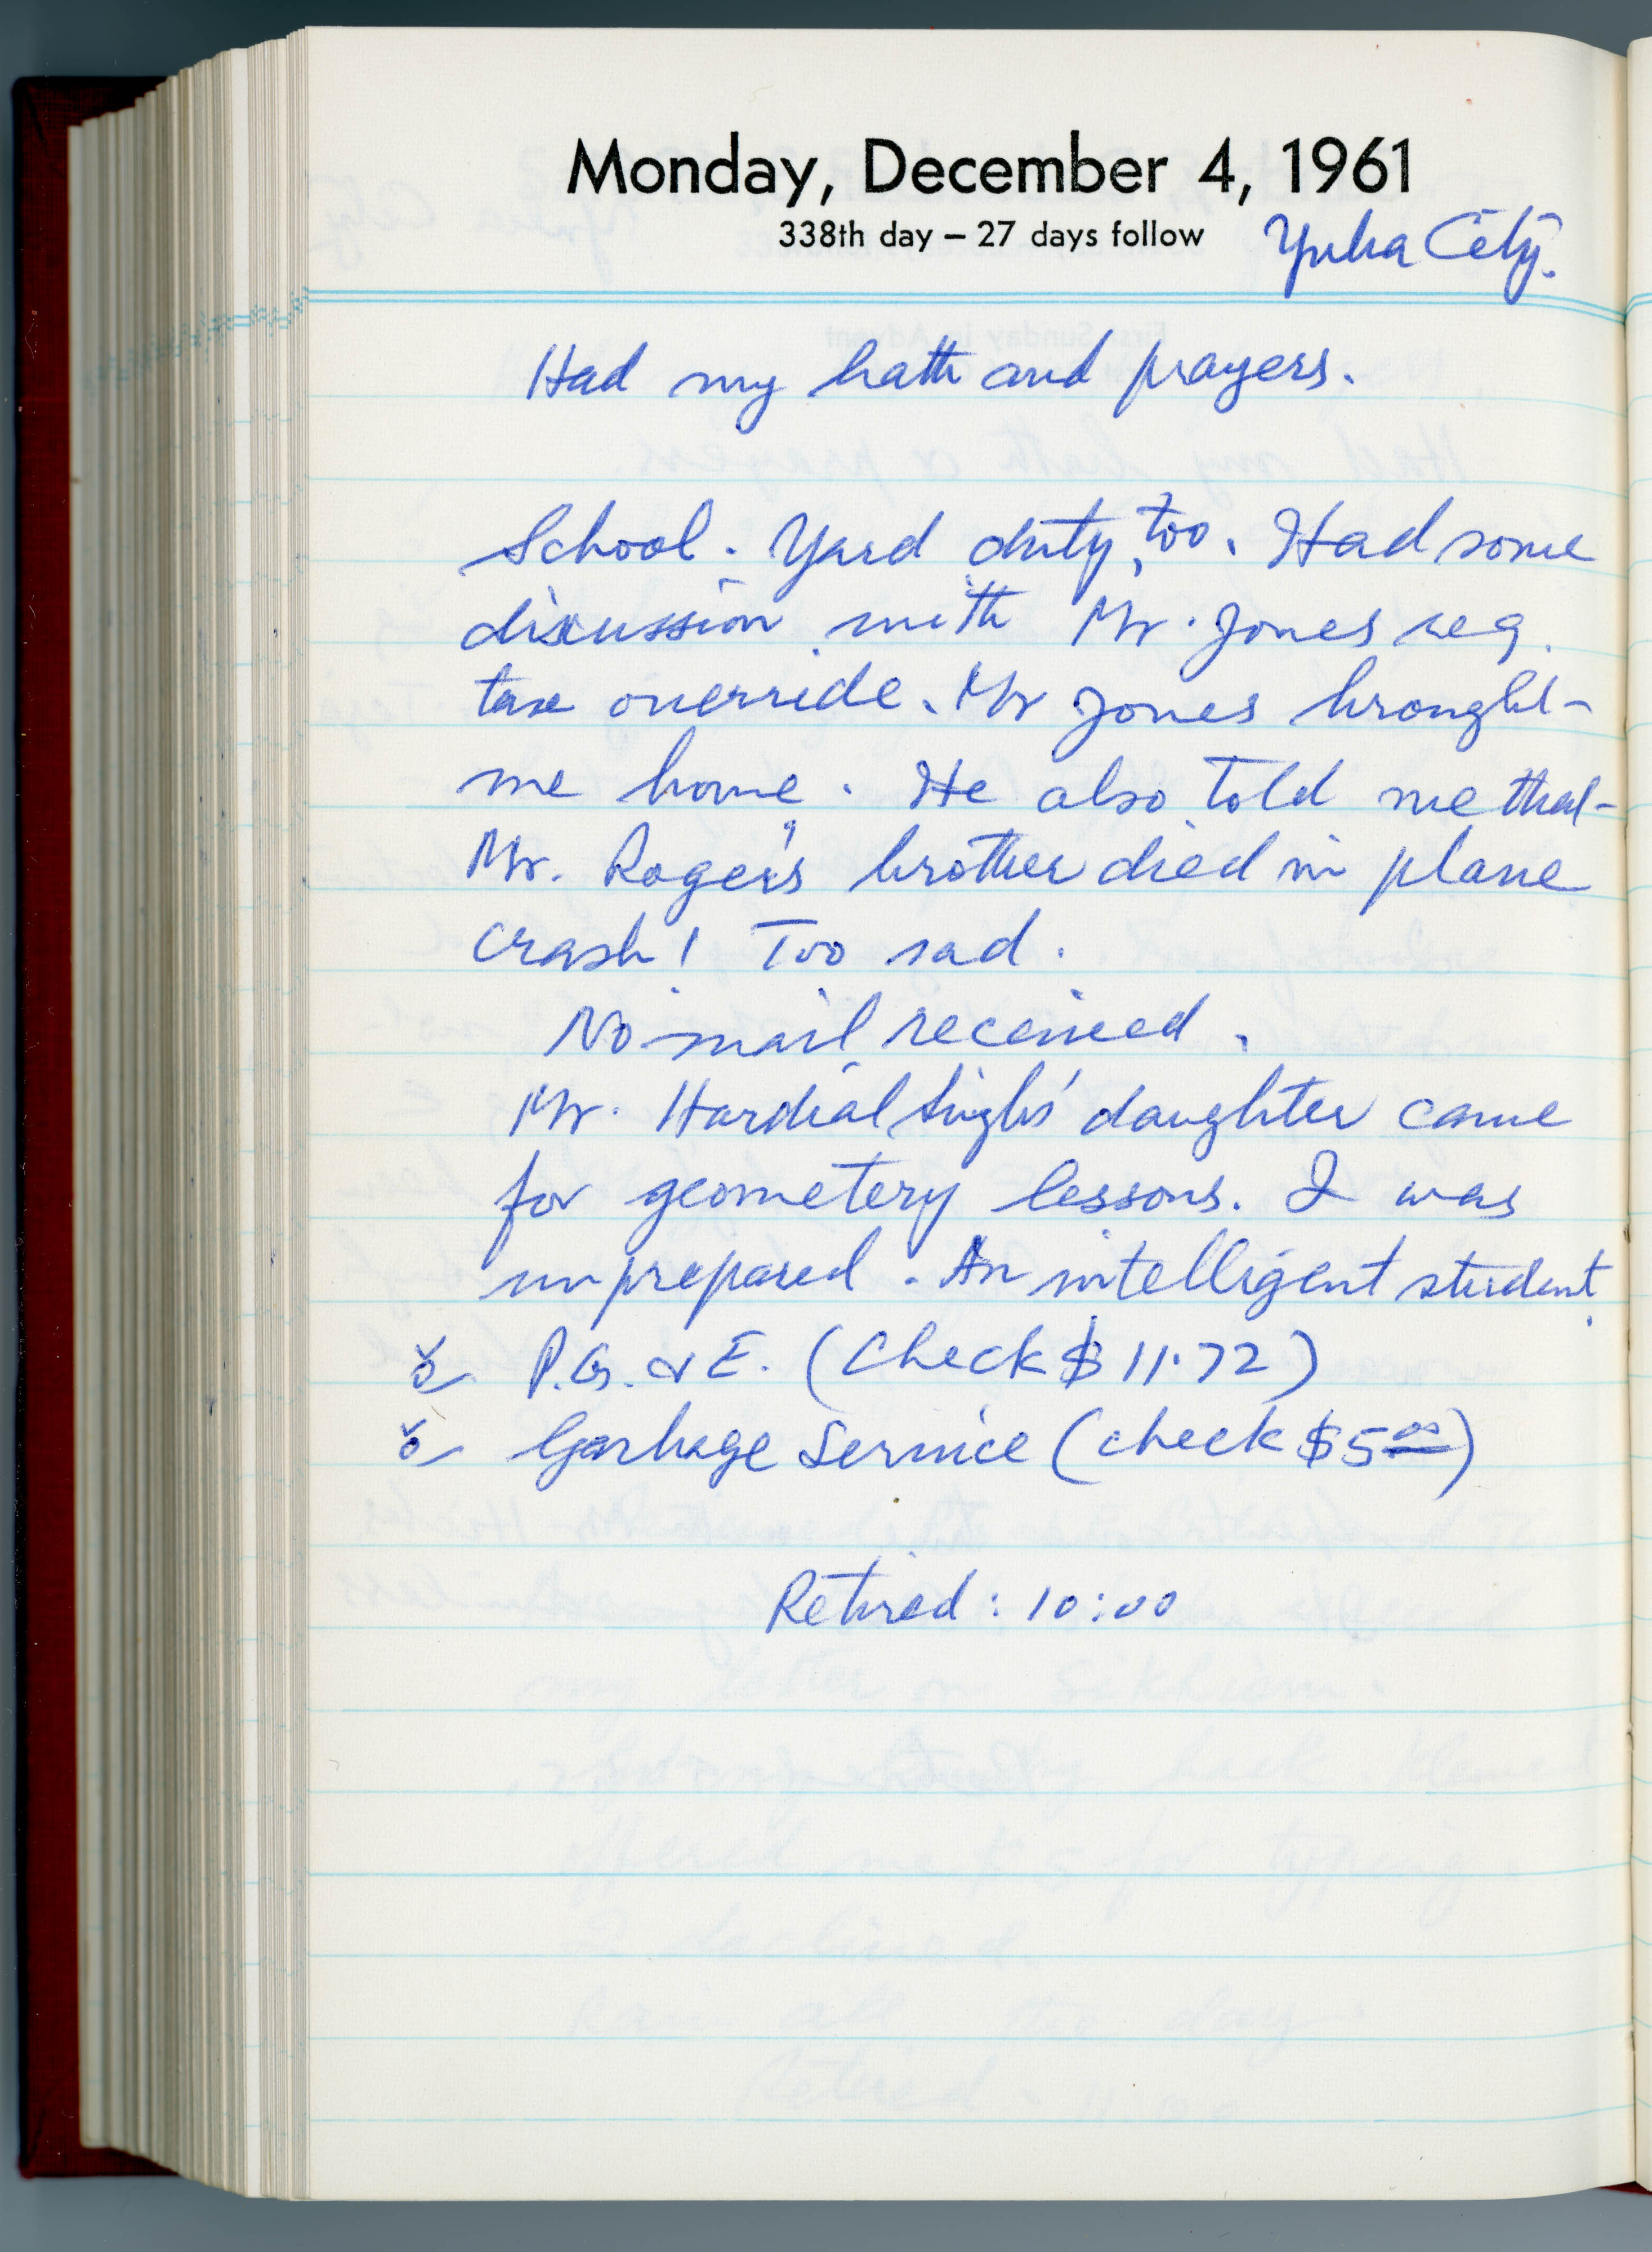 Monday, December 4, 1961
338th day – 27 days follow
Yuba City.
Had my bath and prayers.
School. Yard duty, too. Had some
discussion with Mr. Jones reg.
tax override. Mr Jones brought
me home. He also told me that
Mr. Roger's brother died in plane
crash! Too sad.
No mail received.
Mr. Hardial Singh's daughter came
for geometery lessons. I was
unprepared. An intelligent student.
P.G. & E. (Check $11.72)
Garbage Service (check $5.00)
Retired: 10:00